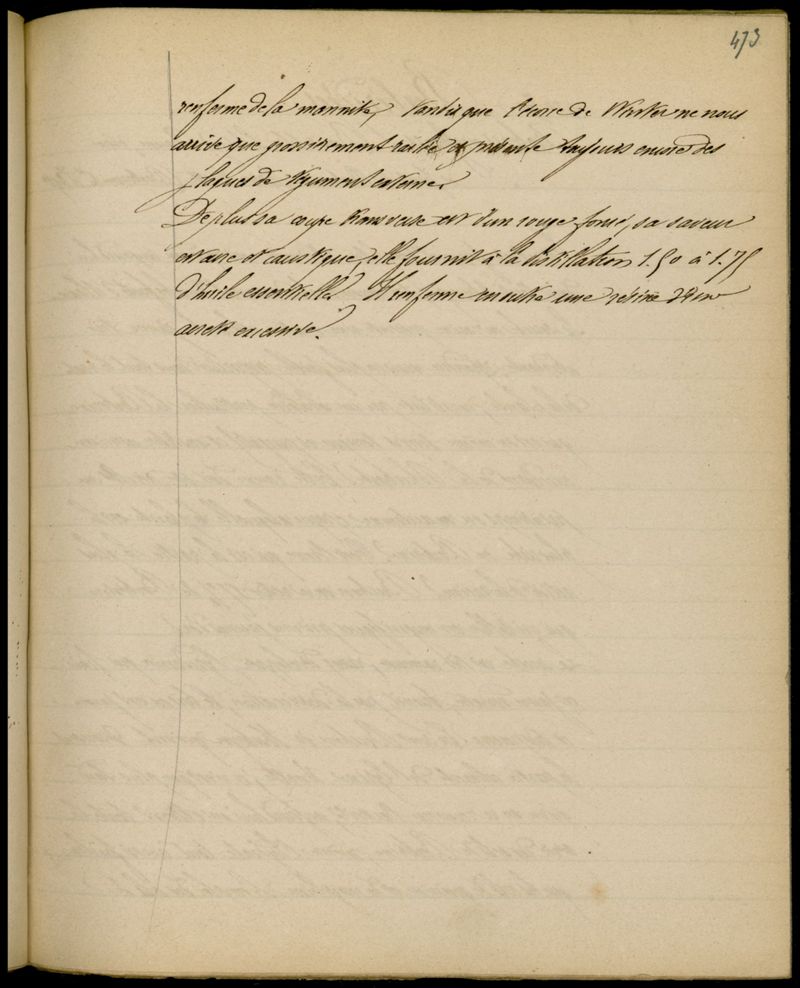 473
renferme de la mannite, tandis que l'écorce de Winter ne nous
arrive que grossièrement raclée et présente toujours encore des
plaques de tégument externe.
De plus sa coupe transversale est d'un rouge foncé, sa saveur
est âcre et caustique, elle fournit à la distillation 1.50 à 1.75
d'huile essentielle. Il renferme en outre une résine d'une
âcreté excessive.